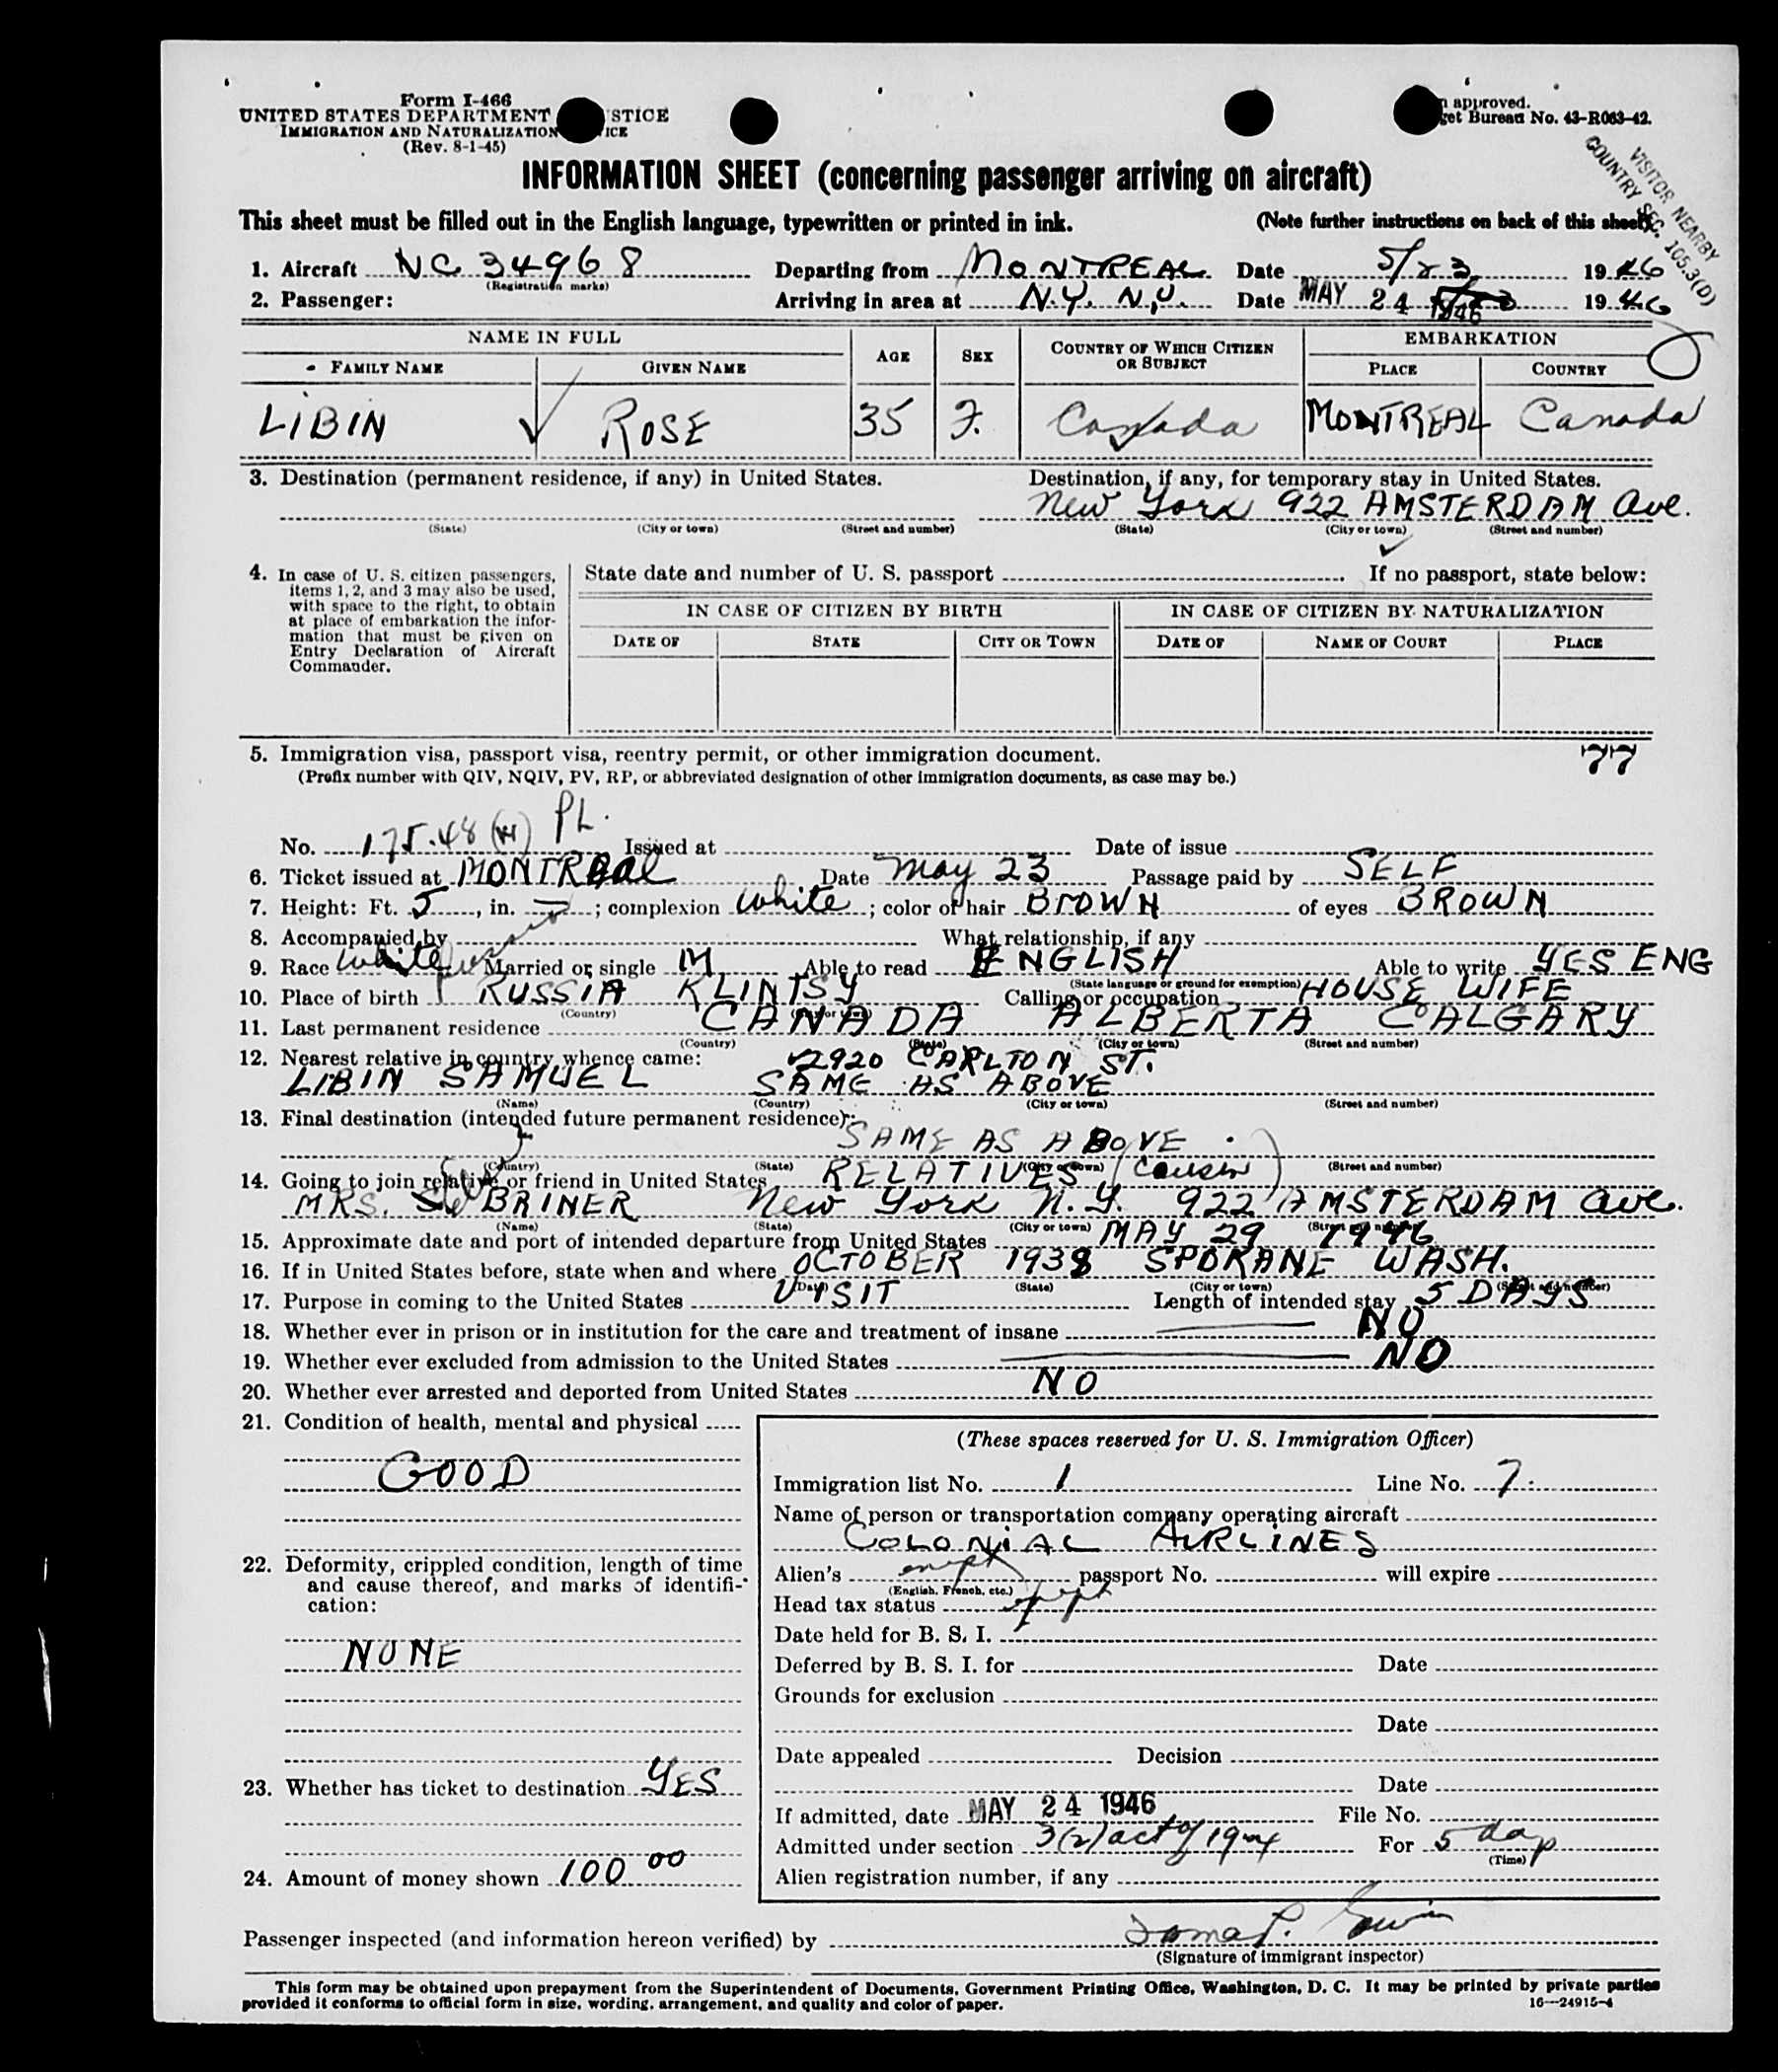 Form I-466
UNITED STATES DEPARTMENT STICE
IMMIGRATION AND NATURALIZATION ICE
(Rev. 8-1-45)
approved.
get Bureau No. 43-R063-42.
VISITOR NEARBY
COUNTRY SEC. 105.3(D)
INFORMATION SHEET (concerning passenger arriving on aircraft)
This sheet must be filled out in the English language, typewritten or printed in ink. (Note further instructions on back of this sheet).
1. Aircraft NC 34968 Departing from MONTREAL Date 5/23 1946
(Registration marks)
2. Passenger: Arriving in area at N.Y. N.Y. Date MAY 24 1946 1946
NAME IN FULL
FAMILY NAME GIVEN NAME AGE SEX COUNTRY OF WHICH CITIZEN OR SUBJECT EMBARKATION
PLACE COUNTRY
LIBIN ROSE 35 F. Canada MONTREAL Canada
3. Destination (permanent residence, if any) in United States. Destination, if any, for temporary stay in United States.
New York 922 AMSTERDAM Ave.
(State) (City or town) (Street and number) (State) (City or town) (Street and number)
4. In case of U. S. citizen passengers,
items 1, 2, and 3 may also be used,
with space to the right, to obtain
at place of embarkation the infor-
mation that must be given on
Entry Declaration of Aircraft
Commander.
State date and number of U. S. passport If no passport, state below:
IN CASE OF CITIZEN BY BIRTH IN CASE OF CITIZEN BY NATURALIZATION
DATE OF STATE CITY OR TOWN DATE OF NAME OF COURT PLACE
5. Immigration visa, passport visa, reentry permit, or other immigration document. 77
(Prefix number with QIV, NQIV, PV, RP, or abbreviated designation of other immigration documents, as case may be.)
PL.
No. 175.48 Issued at Date of issue
6. Ticket issued at MONTREAL Date May 23 Passage paid by SELF
7. Height: Ft. 5, in. ; complexion white; color of hair BROWN of eyes BROWN
8. Accompanied by What relationship, if any
9. Race White Married or single M Able to read ENGLISH Able to write YES ENG
(State language or ground for exemption)
10. Place of birth RUSSIA KLINTSY Calling or occupation HOUSE WIFE
(Country) (City or town)
11. Last permanent residence CANADA ALBERTA CALGARY
(Country) (State) (City or town) (Street and number)
12. Nearest relative in country whence came: 2920 CARLTON ST.
LIBIN SAMUEL SAME AS ABOVE
(Name) (Country) (City or town) (Street and number)
13. Final destination (intended future permanent residence):
SAME AS ABOVE
(Country) (State) (City or town) (Street and number)
14. Going to join relative or friend in United States RELATIVES (cousin)
MRS. BRINER New York N.Y. 922 AMSTERDAM Ave.
(Name) (State) (City or town) (Street and number)
15. Approximate date and port of intended departure from United States MAY 29 1946
16. If in United States before, state when and where OCTOBER 1938 SPOKANE WASH.
(Day) (State) (City or town) (Street and number)
17. Purpose in coming to the United States VISIT Length of intended stay 5 DAYS
18. Whether ever in prison or in institution for the care and treatment of insane NO
19. Whether ever excluded from admission to the United States NO
20. Whether ever arrested and deported from United States NO
21. Condition of health, mental and physical
GOOD
22. Deformity, crippled condition, length of time
and cause thereof, and marks of identifi-
cation:
NONE
23. Whether has ticket to destination YES
24. Amount of money shown 100 00
(These spaces reserved for U. S. Immigration Officer)
Immigration list No. 1 Line No. 7.
Name of person or transportation company operating aircraft
COLONIAL AIRLINES
Alien's passport No. will expire
(English, French, etc.)
Head tax status
Date held for B. S. I.
Deferred by B. S. I. for Date
Grounds for exclusion
Date
Date appealed Decision
Date
If admitted, date MAY 24 1946 File No.
Admitted under section 3(2) act of 1924 For 5 days
(Time)
Alien registration number, if any
Passenger inspected (and information hereon verified) by
(Signature of immigrant inspector)
This form may be obtained upon prepayment from the Superintendent of Documents, Government Printing Office, Washington, D. C. It may be printed by private parties
provided it conforms to official form in size, wording, arrangement, and quality and color of paper. 16—24915-4